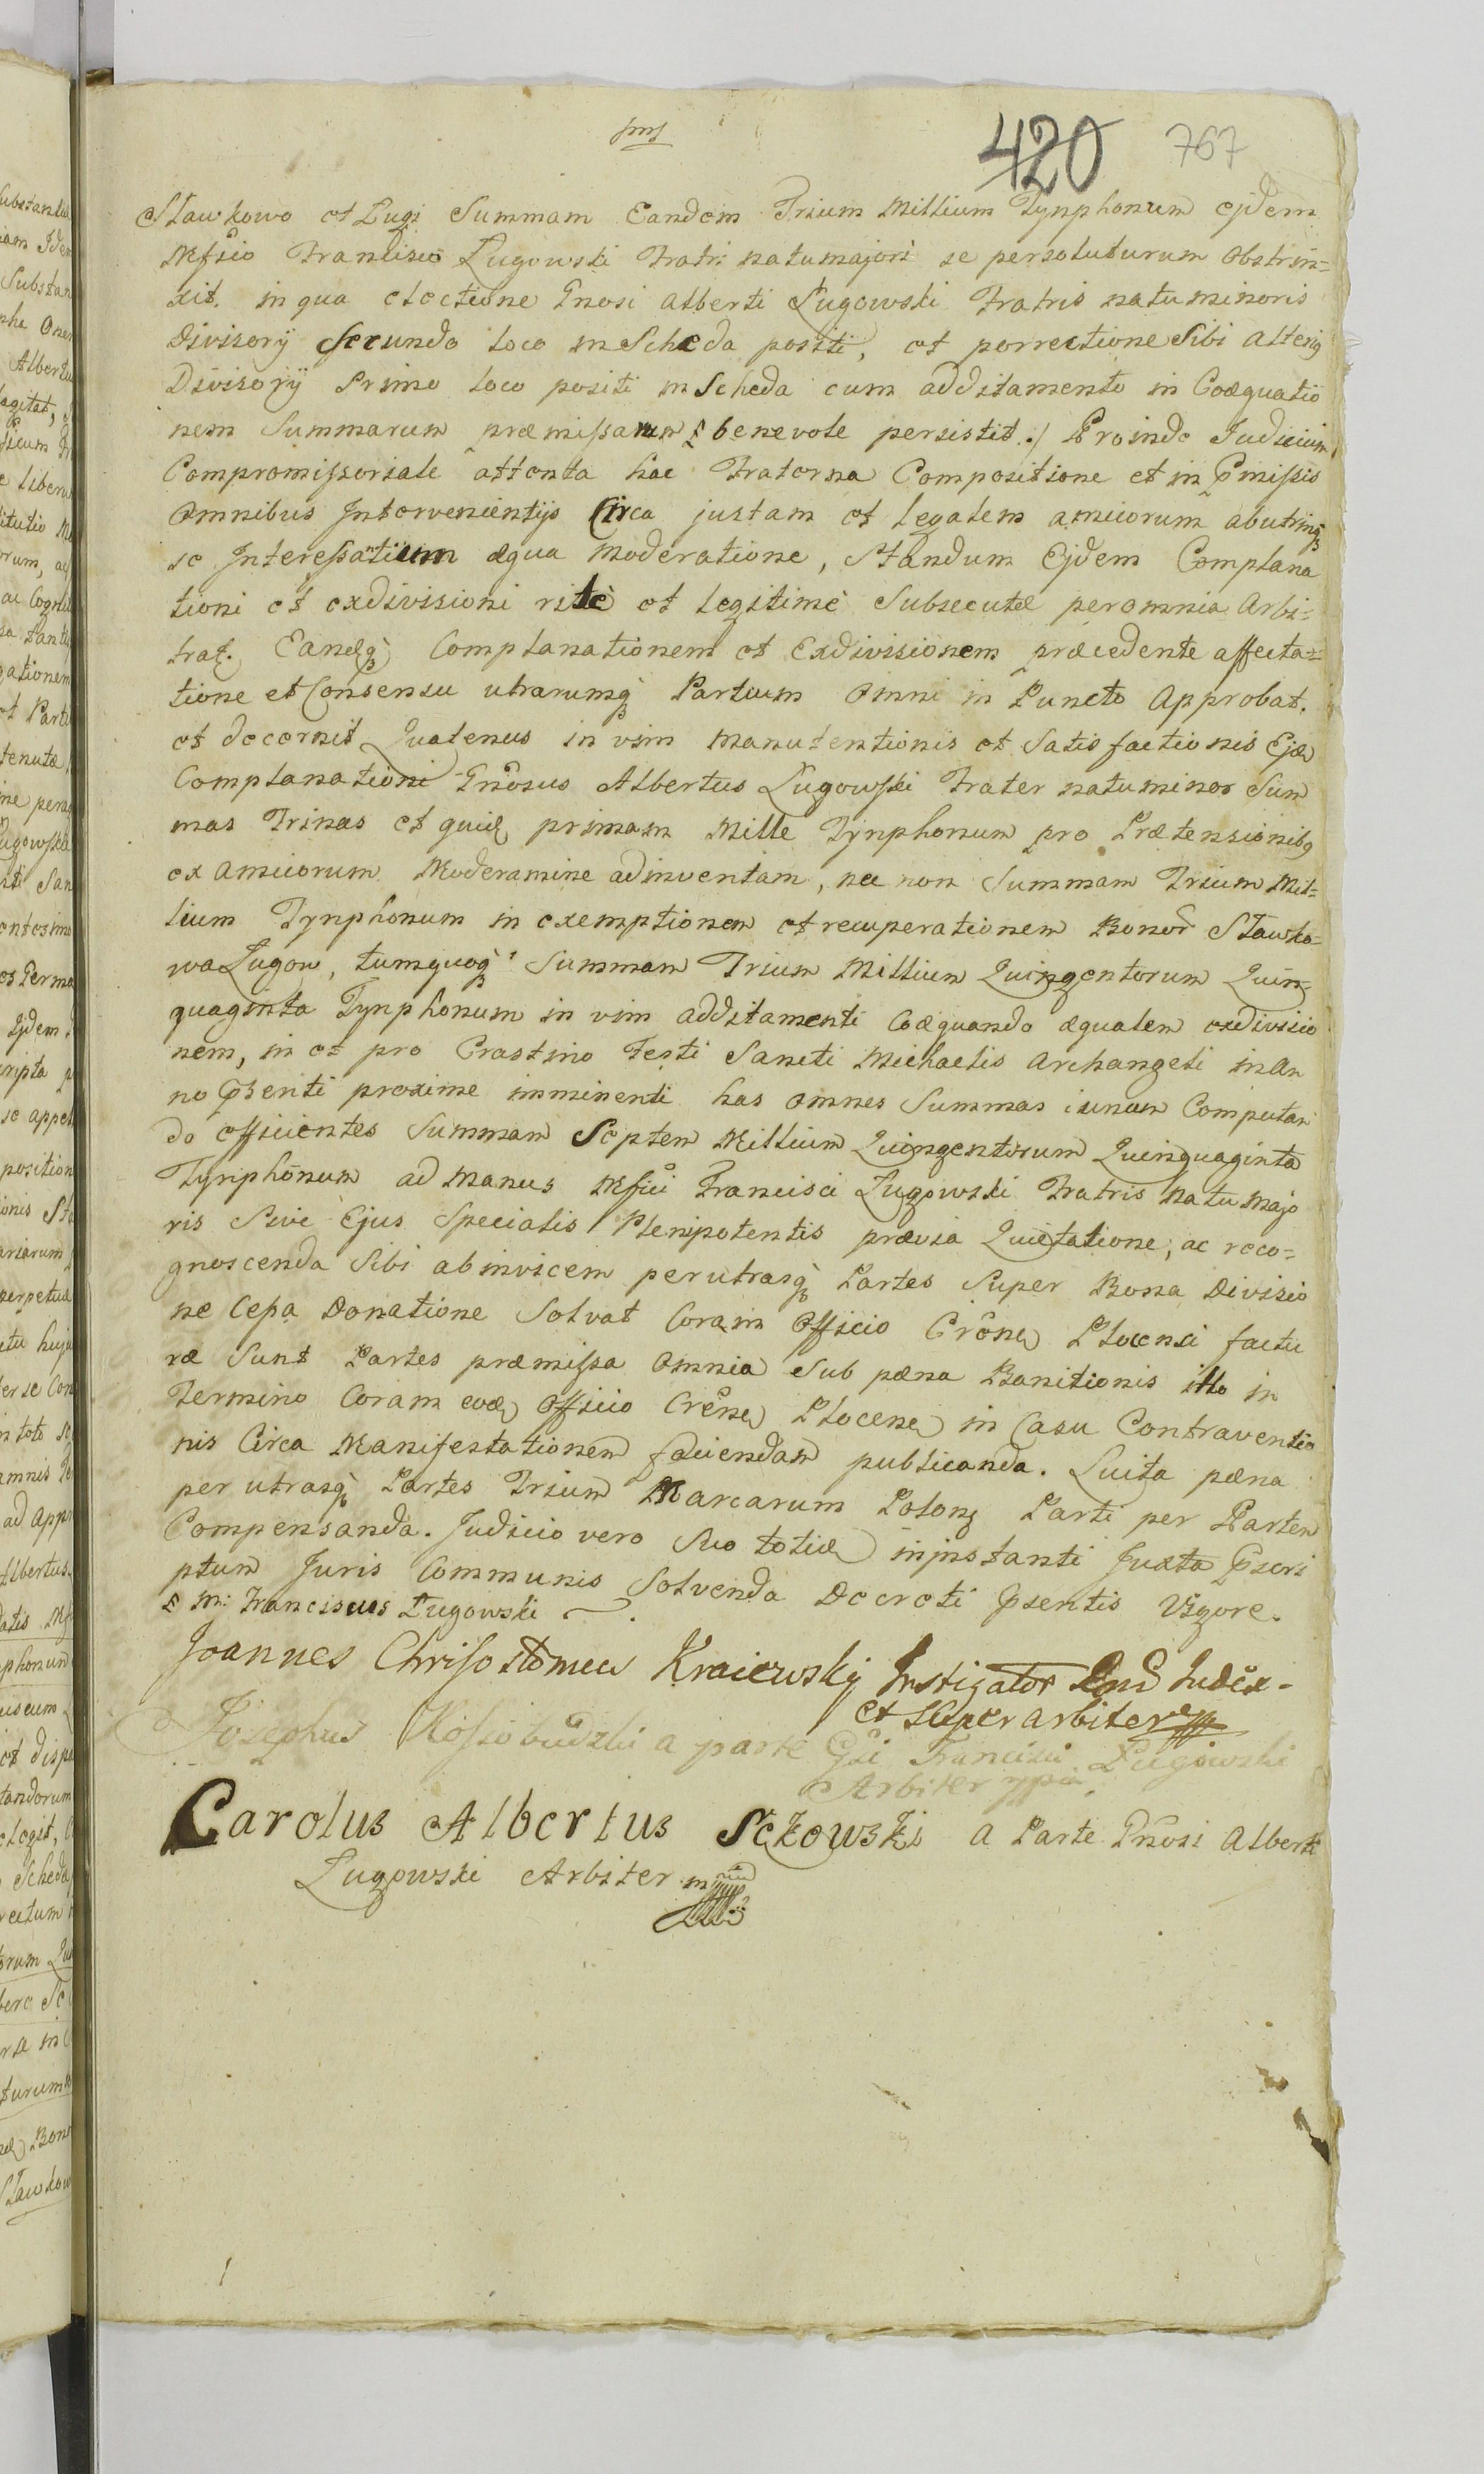 420 767
Stawkowo et Lugi Summam Eandem Trium Millium Tynphonum ejdem
Mfsio Francisco Lugowski Fratri natumajori se persoluturum Obstrin=
xit. in qua electione Gnosi Alberti Lugowski Fratris natuminoris
Divisorij secundo loco in Scheda positi, et porrectione Sibi alterig
Divisorij Primo loco positi in Scheda cum additamento in Coæquatio
nem Summarum præmissarum benevole persistit./ Proinde Judicium
Compromissoriale attenta hac Fraterna Compositione et in Pmissis
Omnibus Intervenientijs Circa justam et legalem amicorum abutrinq
se Interessatium æqua moderatione, Standum Ejdem Complana
tioni et exdivisioni ritè et legitimè Subsecutæ peromnia Arbi=
trat. Eandq Complanationem et Exdivisionem præcedente affecta=
tione et Consensu utrarumq Partium Omni in Puncto Approbat.
et decernit Quatenus in vim manutentionis et Satisfactionis Ejd
Complanationi Gnosus Albertus Lugowski Frater natuminor Sum
mas Trinas et quid primam Mille Tynphonum pro Prætensionibg
ex amicorum Moderamine adinventam, nec non Summam Trium Mil=
lium Tynphonum in exemptionem et recuperationem Bonor Stawko=
wa Lugow, tumquoq Summam Trium Millium Quingentorum Quin=
quaginta Tynphonum in vim additamenti Coæquando æqualem exdivisio
nem, in et pro Crastino Festi Sancti Michaelis Archangeli in an
no Psenti proxime imminenti has omnes Summas iunum Computan
do efficientes Summam Septem Millium Quingentorum Quinquaginta
Tynphonum ad manus Mfici Francisci Lugowski Fratris natu majo
ris Sive Ejus Specialis Plenipotentis prævia Quietatione, ac reco=
gnoscenda Sibi abinvicem perutrasq Partes Super Bona Divisio
ne Cessa Donatione Solvat Coram Officio Crone Plocensi factu
ræ Sunt Partes præmissa Omnia Sub pæna Banitionis illo in
Termino Coram eod Officio Crene Plocene in Casu Contraventio
nis Circa Manifestationem faciendam publicanda. Luita pæna
per utrasq Partes Trium Marcarum Polong Parti per Partem
Compensanda. Judicio vero Suo toties in instanti Juxta Pscri
ptum Juris Communis Solvenda Decreti Psentis Vigore.
Mi: Franciscus Lugowski
Joannes Chrisostomus Kraiewskij Instigator Judex
et Superarbiter
Josephus Kossobudzki a parte Gsi Francisci Lugowski
Arbiter
Carolus Albertus Sczowski a Parte Gnosi Alberti
Lugowski Arbiter mp